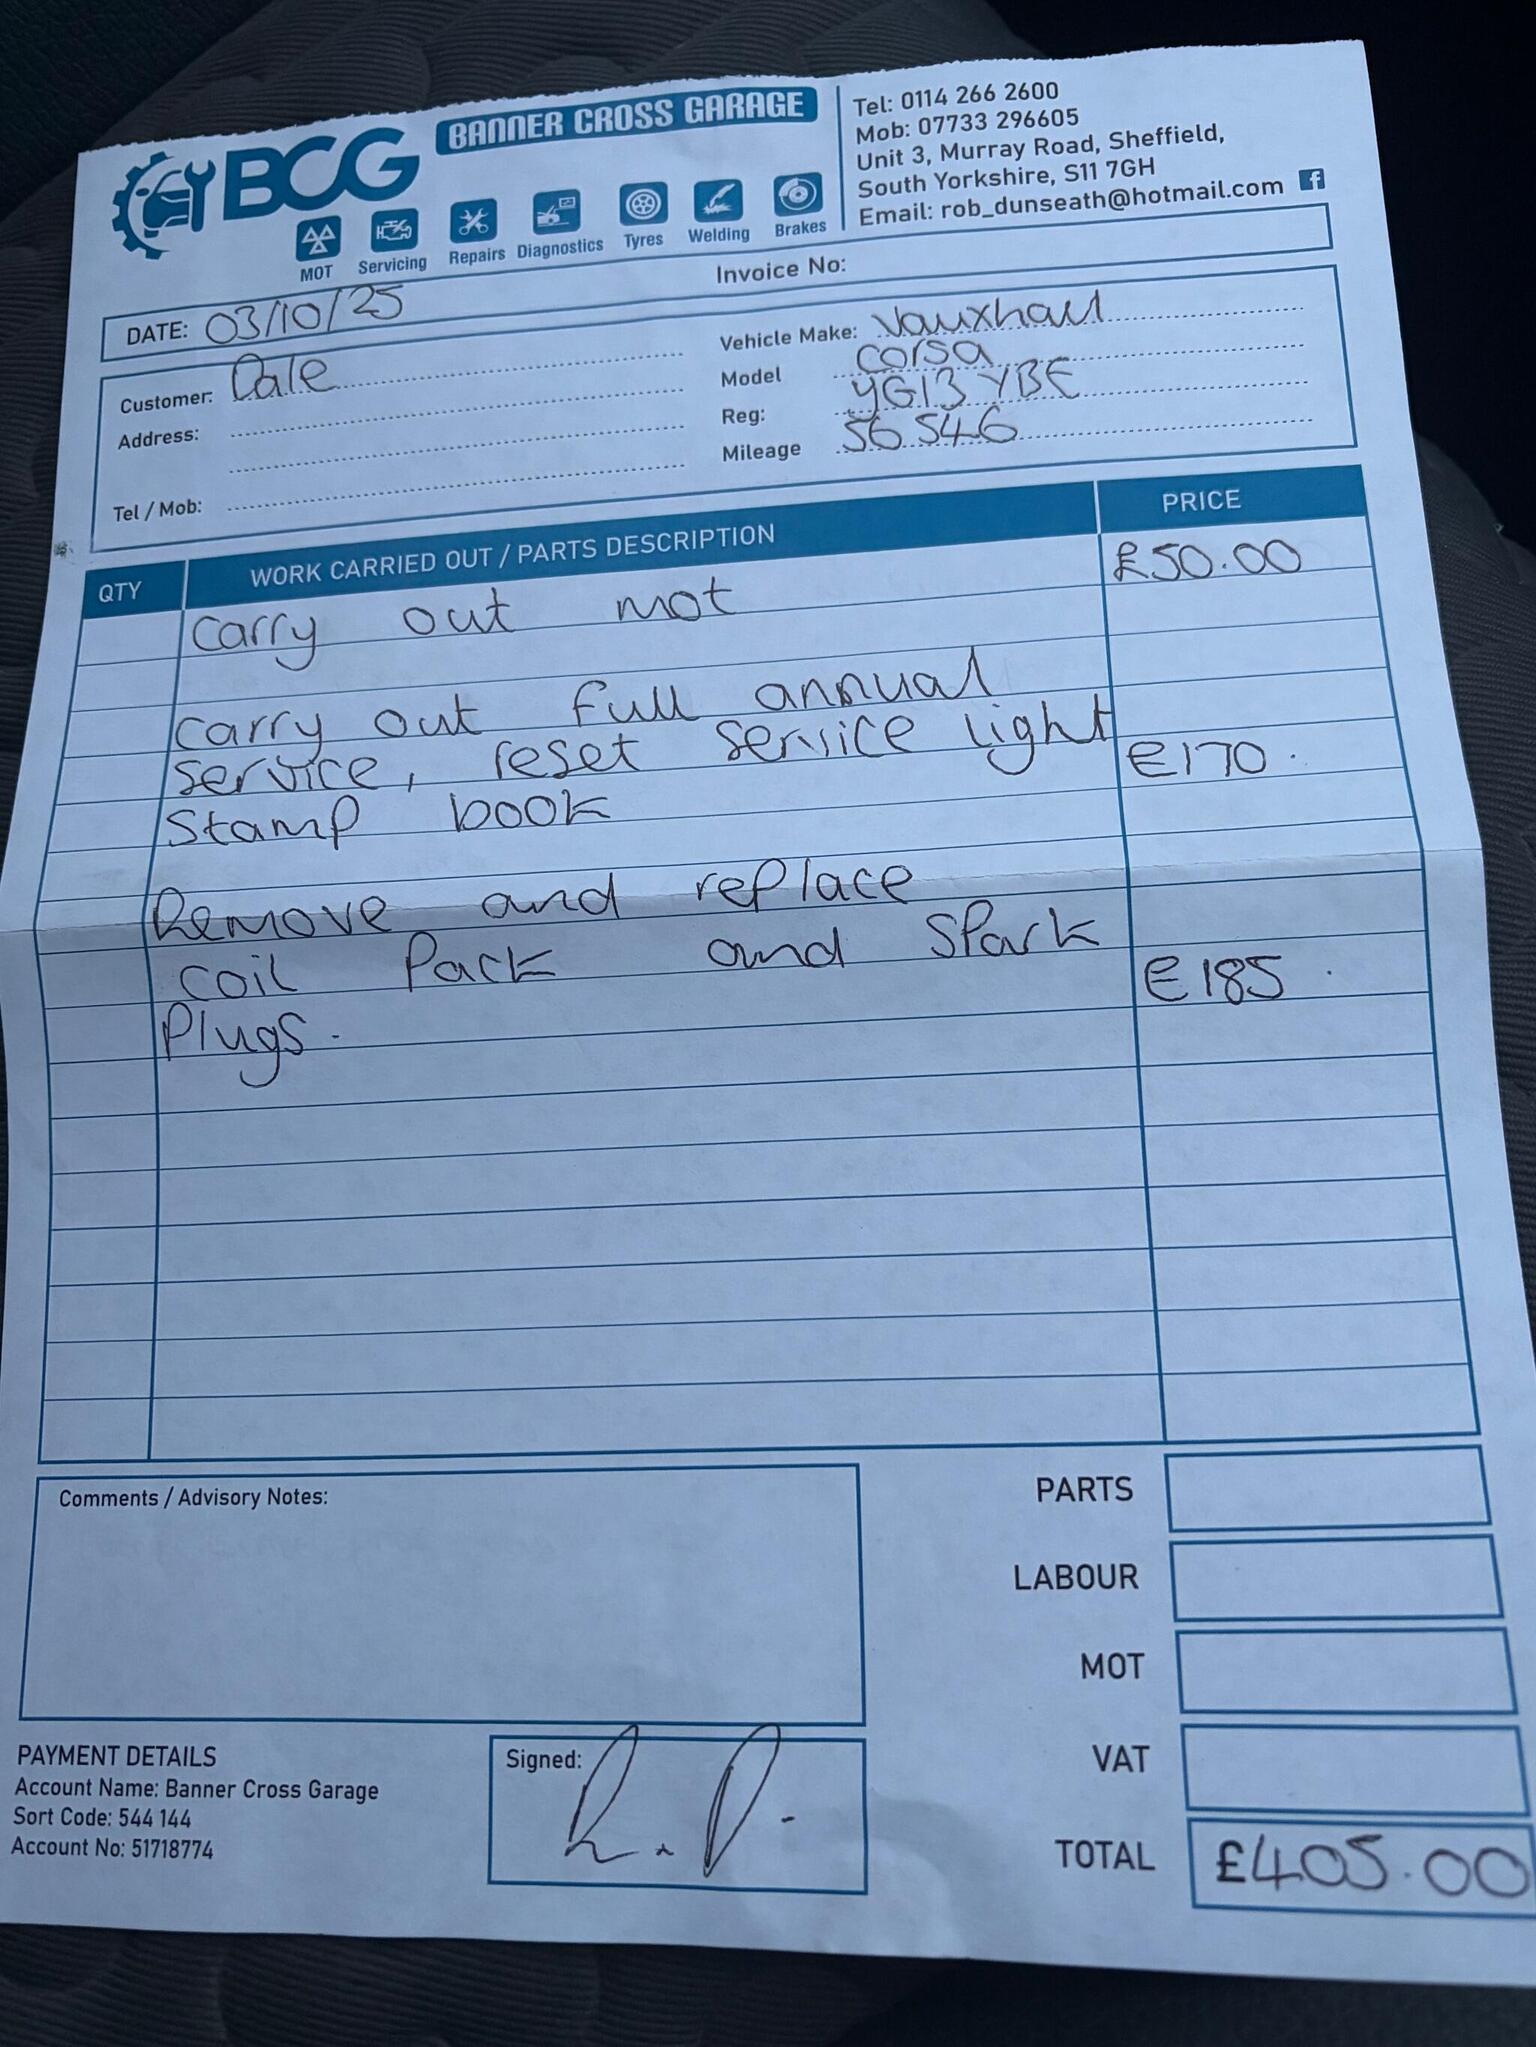 BCG
BANNER CROSS GARAGE
MOT Servicing Repairs Diagnostics Tyres Welding Brakes
Tel: 0114 266 2600
Mob: 07733 296605
Unit 3, Murray Road, Sheffield,
South Yorkshire, S11 7GH
Email: rob_dunseath@hotmail.com
Invoice No:
DATE: 03/10/25
Customer: Dale
Address:
Tel / Mob:
Vehicle Make: Vauxhall
Model corsa
Reg: YG13 YBE
Mileage 56546
QTY WORK CARRIED OUT / PARTS DESCRIPTION PRICE
carry out mot £50.00
carry out full annual
service, reset service light £170.
Stamp book
Remove and replace
coil pack and spark £185.
plugs.
Comments / Advisory Notes:
PARTS
LABOUR
MOT
VAT
TOTAL £405.00
PAYMENT DETAILS
Account Name: Banner Cross Garage
Sort Code: 544 144
Account No: 51718774
Signed: R.D.